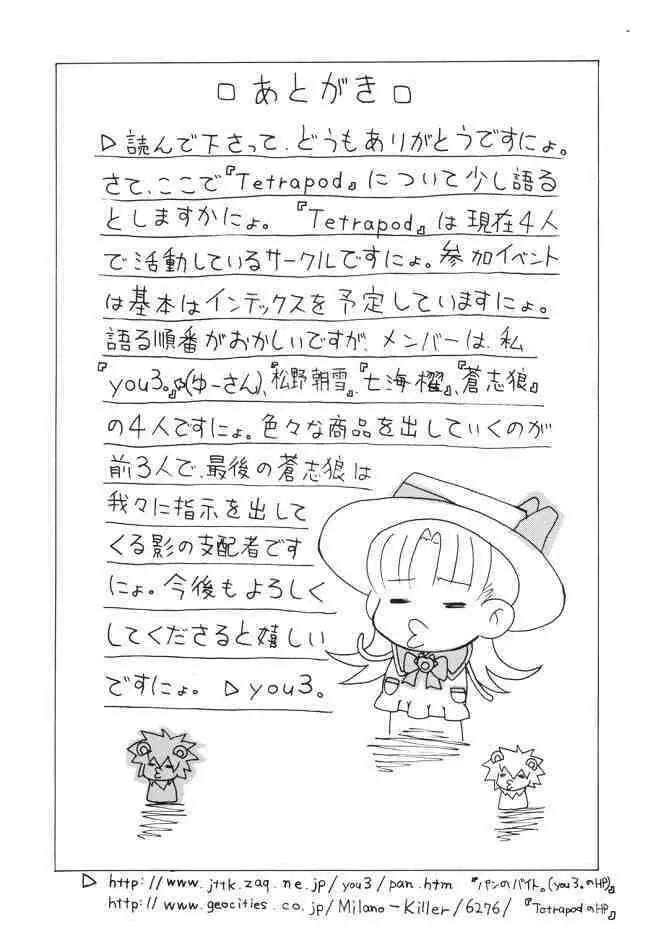 □あとがき□
▷読んで下さって、どうもありがとうですにょ。
さて、ここで『Tetrapod』について少し語る
としますかにょ。『Tetrapod』は現在4人
で活動しているサークルですにょ。参加イベント
は基本はインテックスを予定していますにょ。
語る順番がおかしいですが、メンバーは、私
『you3。』(ゆーさん)、『松野朝雪』、『七海櫂』、『蒼志狼』
の4人ですにょ。色々な商品を出していくのが
前3人で、最後の蒼志狼は
我々に指示を出して
くる影の支配者です
にょ。今後もよろしく
してくださると嬉しい
ですにょ。▷you3。
▷ http://www.jttk.zaq.ne.jp/you3/pan.htm 『パンのバイト。(you3。のHP)』
http://www.geocities.co.jp/Milano-Killer/6276/ 『TetrapodのHP』